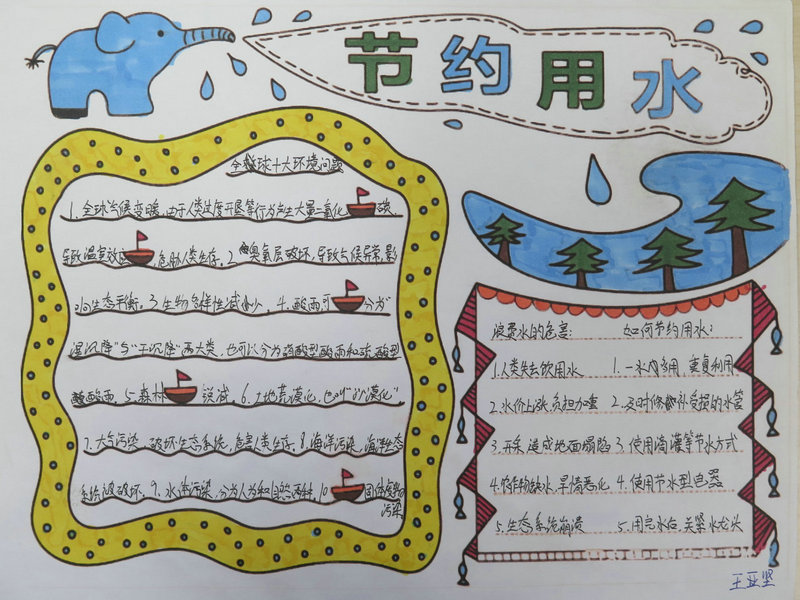 节约用水
全球十大环境问题
1、全球气候变暖,由于人类过度开垦等行为产生大量二氧化碳,
导致温室效应 危胁人类生存。2、臭氧层破坏,导致气候异常,影
响生态平衡。3、生物多样性减少。4、酸雨可 分为“
湿沉降”与“干沉降”两大类,也可以分为硝酸型酸雨和硫酸型
酸雨。5、森林 锐减。6、土地荒漠化,也叫“沙漠化”
7、大气污染,破坏生态系统,危害人类生存。8、海洋污染,海洋生态
系统被破坏。9、水体污染,分为人为和自然两种。10、固体废物
污染
浪费水的危害: 如何节约用水:
1.人类失去饮用水 1.一水多用,重复利用
2.水价上涨,负担加重 2.及时修补受损的水管
3.开采造成地面塌陷 3.使用滴灌等节水方式
4.农作物缺水,旱情恶化 4.使用节水型电器
5.生态系统崩溃 5.用完水后,关紧水龙头
王亚坚